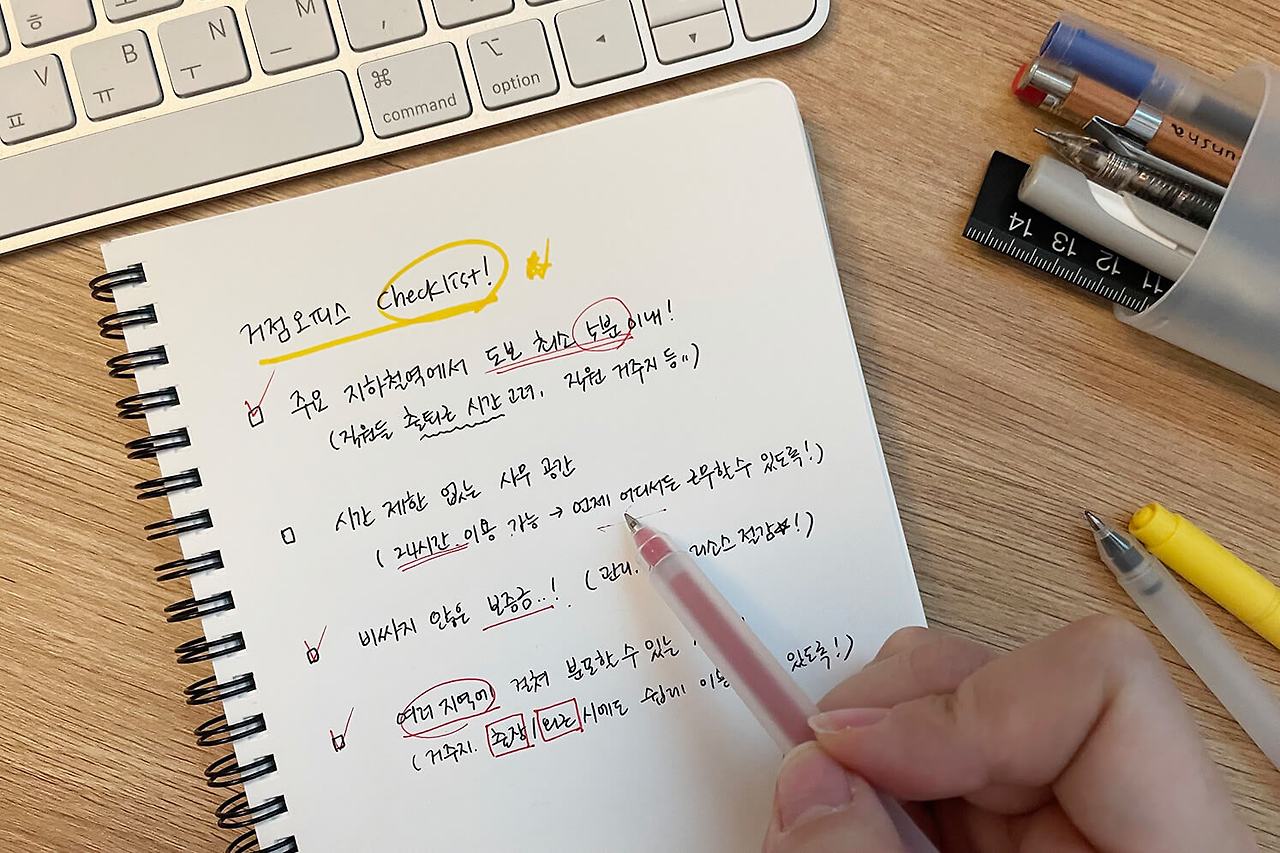 ㅎ
V ㅍ
B ㅠ
N ㅜ
M ㅡ
,
⌘ command
⌥ option
◀
▼
거점오피스 Checklist!
주요 지하철역에서 도보 최소 5분 이내!
(직원들 출퇴근 시간 고려, 직원 거주지 등..)
시간 제한 없는 사무 공간
(24시간 이용 가능 → 언제 어디서든 근무할 수 있도록!)
비싸지 않은 보증금..! (관리, 리소스 절감★!)
여러 지역에 걸쳐 분포할 수 있는
(거주지, 출장/외근 시에도 쉽게 이용 있도록!)
14 13 12 11
unsha